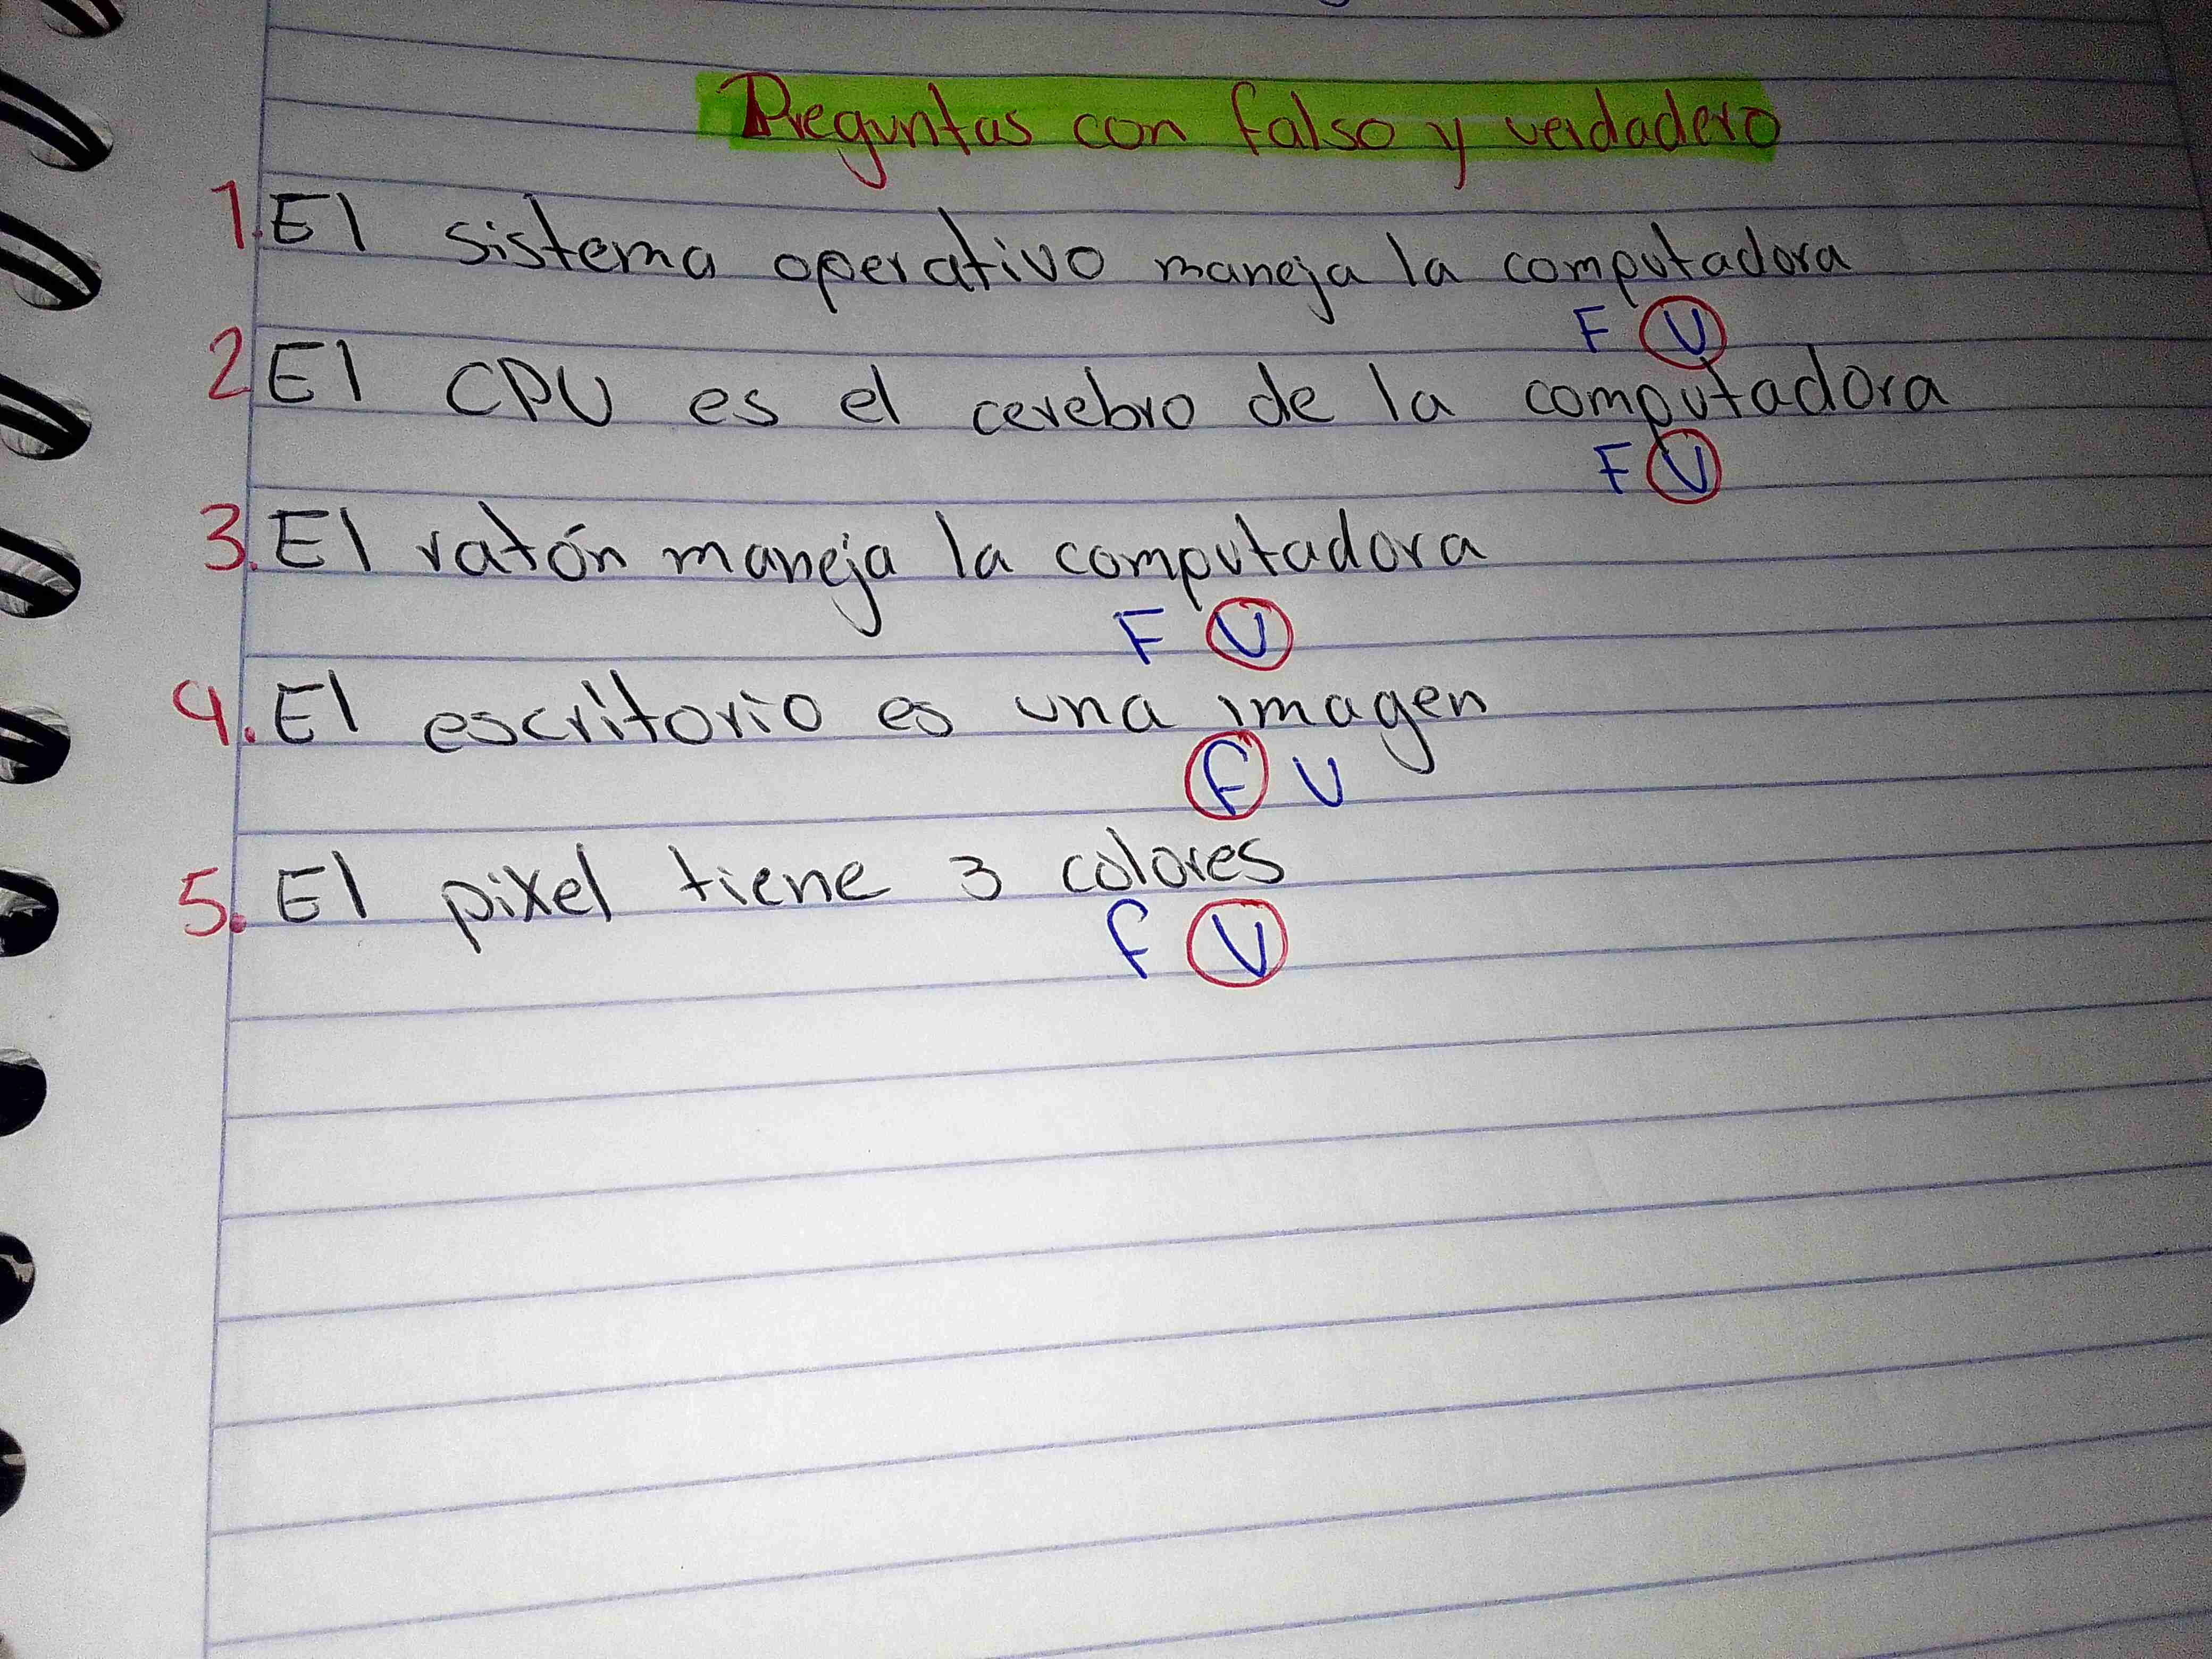 Preguntas con falso y verdadero
1. El sistema operativo maneja la computadora
F V
2 El CPU es el cerebro de la computadora
F V
3. El ratón maneja la computadora
F V
4. El escritorio es una imagen
F V
5. El pixel tiene 3 colores
F V